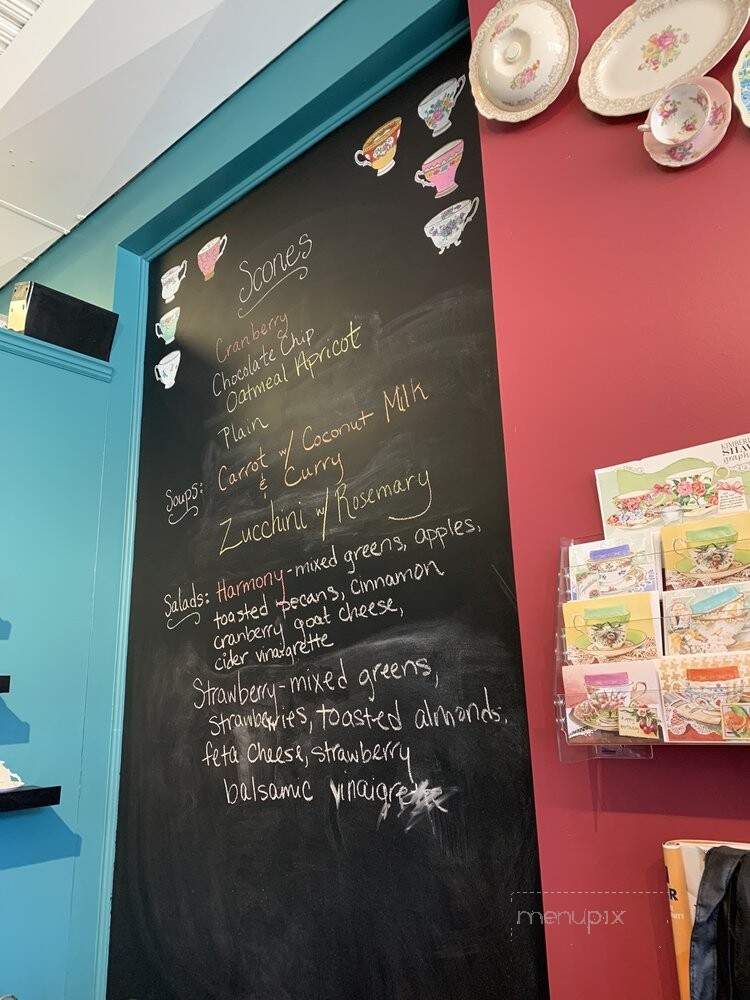 Scones
Cranberry
Chocolate Chip
Oatmeal Apricot
Plain
Soups: Carrot w/ Coconut Milk
& Curry
Zucchini w/ Rosemary
Salads: Harmony - mixed greens, apples,
toasted pecans, cinnamon
cranberry goat cheese,
cider vinaigrette
Strawberry - mixed greens,
strawberries, toasted almonds,
feta cheese, strawberry
balsamic vinaigrette
SHAW
menupix